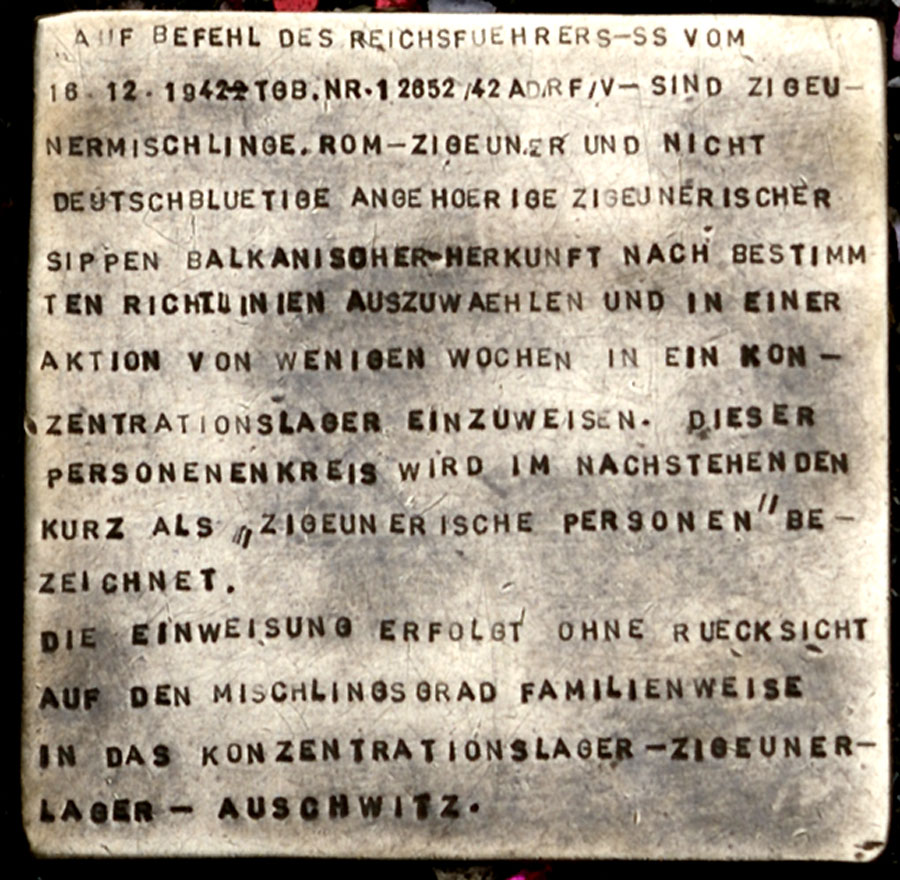 AUF BEFEHL DES REICHSFUEHRERS-SS VOM
16.12.1942 TGB.NR.1 2652/42 AD/RF/V- SIND ZIGEU-
NERMISCHLINGE. ROM-ZIGEUNER UND NICHT
DEUTSCHBLUETIGE ANGEHOERIGE ZIGEUNERISCHER
SIPPEN BALKANISCHER-HERKUNFT NACH BESTIMM
TEN RICHTLINIEN AUSZUWAEHLEN UND IN EINER
AKTION VON WENIGEN WOCHEN IN EIN KON-
ZENTRATIONSLAGER EINZUWEISEN. DIESER
PERSONENENKREIS WIRD IM NACHSTEHENDEN
KURZ ALS „ZIGEUNERISCHE PERSONEN" BE-
ZEICHNET.
DIE EINWEISUNG ERFOLGT OHNE RUECKSICHT
AUF DEN MISCHLINGSGRAD FAMILIENWEISE
IN DAS KONZENTRATIONSLAGER-ZIGEUNER-
LAGER - AUSCHWITZ.